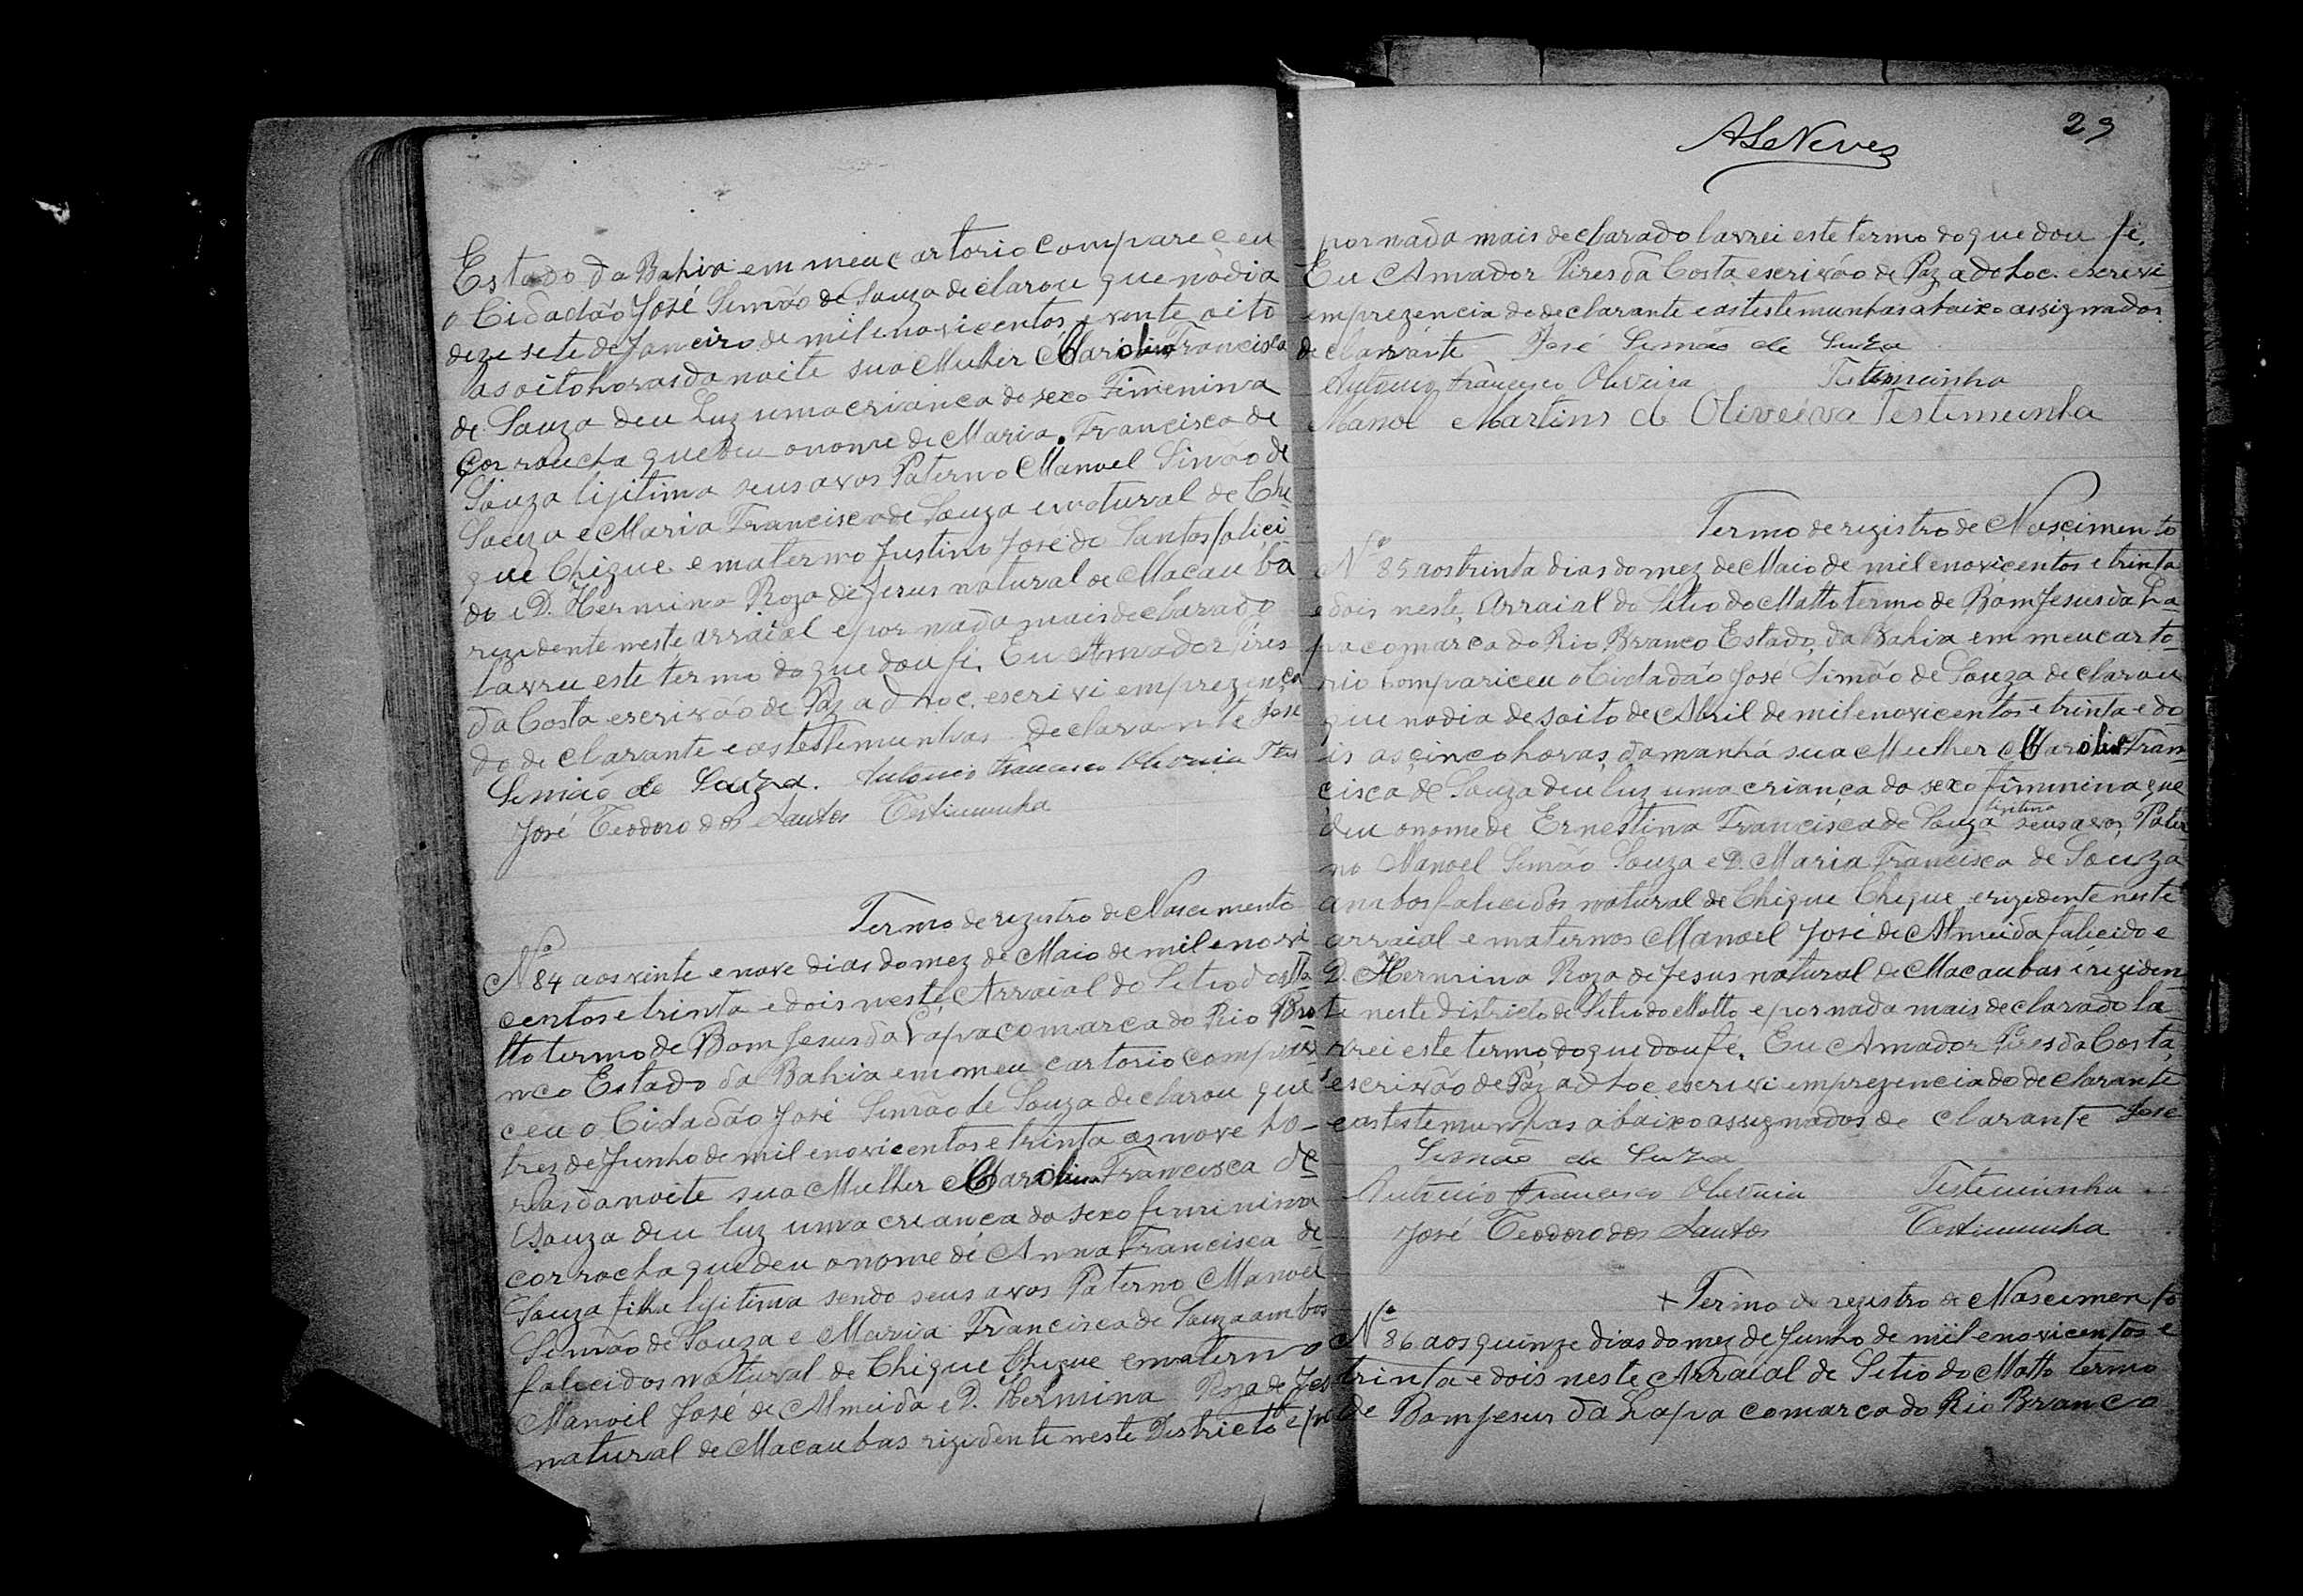 Estado da Bahia em meu cartorio compareceu
o Cidadão José Simão de Souza declarou que no dia
deze sete de Janeiro de mil enovicentos e vente oito
as oito horas da noite sua Mulher Francisca
de Souza deu Luz uma criança do sexo Fimenina
que deu o nome de Maria Francisca de
Souza lijitima seus avos Paterno Manoel Simão de
Souza e Maria Francisca de Souza natural de Chi-
que Chique e materno Justino José do Santos falici-
do e D. Hermina Roza de Jesus natural de Macauba
rezidente neste arraial e por nada mais declarado
Lavrei este termo do que dou fé. Eu Amador Pires
da Costa escrivão de Paz ad hoc. escrivi em prezença
do declarante e as testemunhas declarante José
Simão de Souza. Antonio Francisco Oliveira
José Teodoro dos Santos Testimunha
Termo de rezistro de Nascimento
Nº 84 aos vinte e nove dias do mez de Maio de mil enovi
centos e trinta e dois neste Arraial do Sitio do Ma
tto termo de Bom Jesus da Lapa comarca do Rio Bra
nco Estado da Bahia em meu cartorio compari
ceu o Cidadão José Simão de Souza declarou que
trez de Junho de mil enovicentos e trinta as nove ho-
ras da noite sua Mulher Francisca de
Souza deu luz uma criança do sexo fiminina
que deu o nome de Anna Francisca de
Souza filha lijitima sendo seus avos Paterno Manoel
Simão de Souza e Maria Francisca de Souza ambos
falicidos natural de Chique Chique e materno
Manoil José de Almeida e D. Hermina Roza de Jes
natural de Macaubas rizidente neste Districto e por
ASeNeves
29
por nada mais declarado lavrei este termo do que dou fé.
Eu Amador Pires da Costa escrivão de Paz ad hoc. escrivi
em prezencia do declarante e as testemunhas abaixo assignados.
declarante José Simão de Suza
Antonio Francisco Oliveira Testimunha
Manol Martins d Oliveira Testimunha
Termo de rezistro de Nascimento
Nº 85 aos trinta dias do mez de Maio de mil enovicentos e trinta
e dois neste Arraial do Sitio do Matto termo de Bom Jesus da La-
pa comarca do Rio Branco Estado da Bahia em meu carto-
rio compariceu o Cidadão José Simão de Souza declarou
que no dia desoito de Abril de mil enovicentos e trinta e do
is as cinco horas da manhã sua Mulher Fran-
cisca de Souza deu luz uma criança do sexo fiminina que
deu o nome de Ernestina Francisca de Souza lijitima seus avos Pater
no Manoel Simão Souza e D. Maria Francisca de Souza
ambos falicidos natural de Chique Chique e rizidente neste
arraial e maternos Manoel José de Almeida falicido e
D. Hermina Roza de Jesus natural de Macaubas e reziden
te neste Districto de Sitio do Matto e por nada mais declarado la-
vrei este termo do que dou fé. Eu Amador Pires da Costa
escrivão de Paz ad hoc escrivi em prezencia do declarante
e as testemunhas abaixo assignados declarante José
Simão de Suza
Antonio Francisco Oliveira Testemunha
José Teodoro dos Santos Testimunha
+ Termo de rezistro de Nascimento
Nº 86 aos quinze dias do mez de Junho de mil enovicentos e
trinta e dois neste Arraial de Sitio do Matto termo
de Bom Jesus da Lapa comarca do Rio Branco